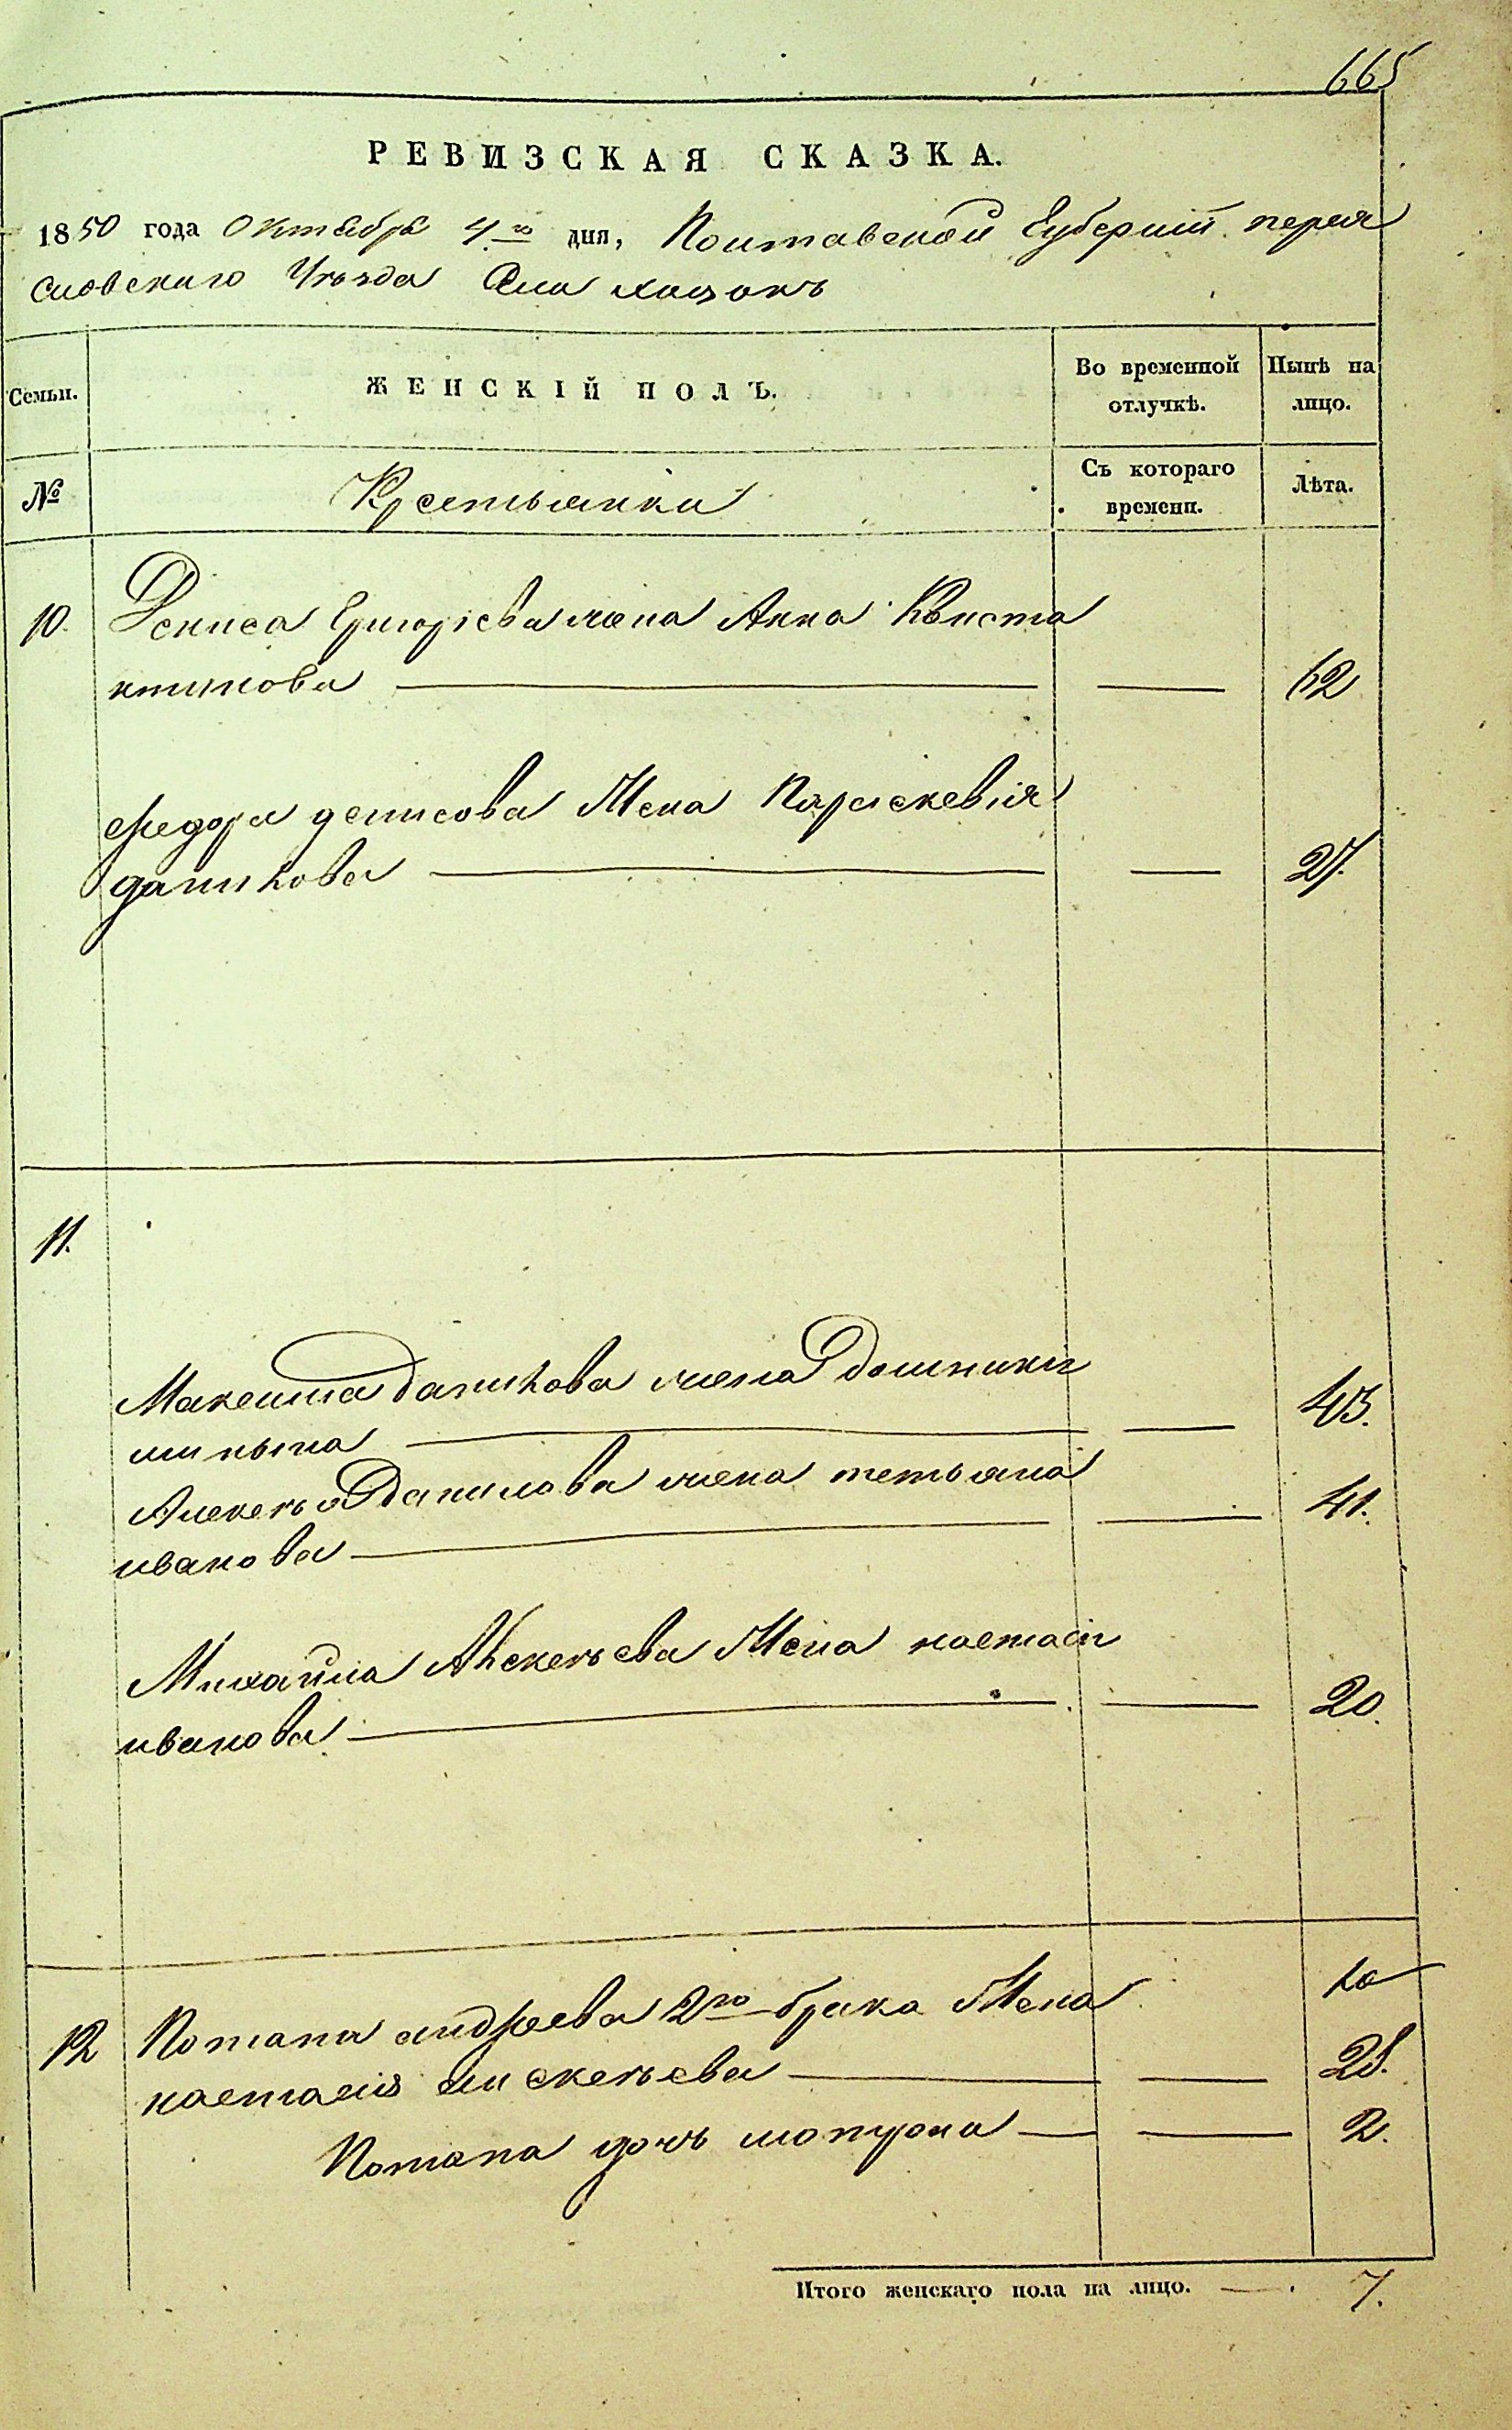 665
РЕВИЗСКАЯ СКАЗКА.
1850 года Октября 4го дня, Полтавской Губернии перея
словского Уезда Села хоцокъ
Семьи.
ЖЕНСКІЙ ПОЛЪ.
Во временной
отлучкѣ.
Нынѣ на
лицо.
№
Крестьянки
Съ котораго
времени.
Лѣта.
10. Дениса Григорієва жена Анна Кънста
нтинова 62
Федора денисова Жена Параскевия
данилова 27.
11.
Максима Данилова жена Домникия
минына 43.
Алексея Данилова жена тетьяна
иванова 41.
Михайла Алексеева Жена настасія
иванова 20.
12 Потапа андреева 2го брака Жена
настасия алексеева 28.
Потапа дочь мотрона 2.
Итого женскаго пола на лицо. 7.